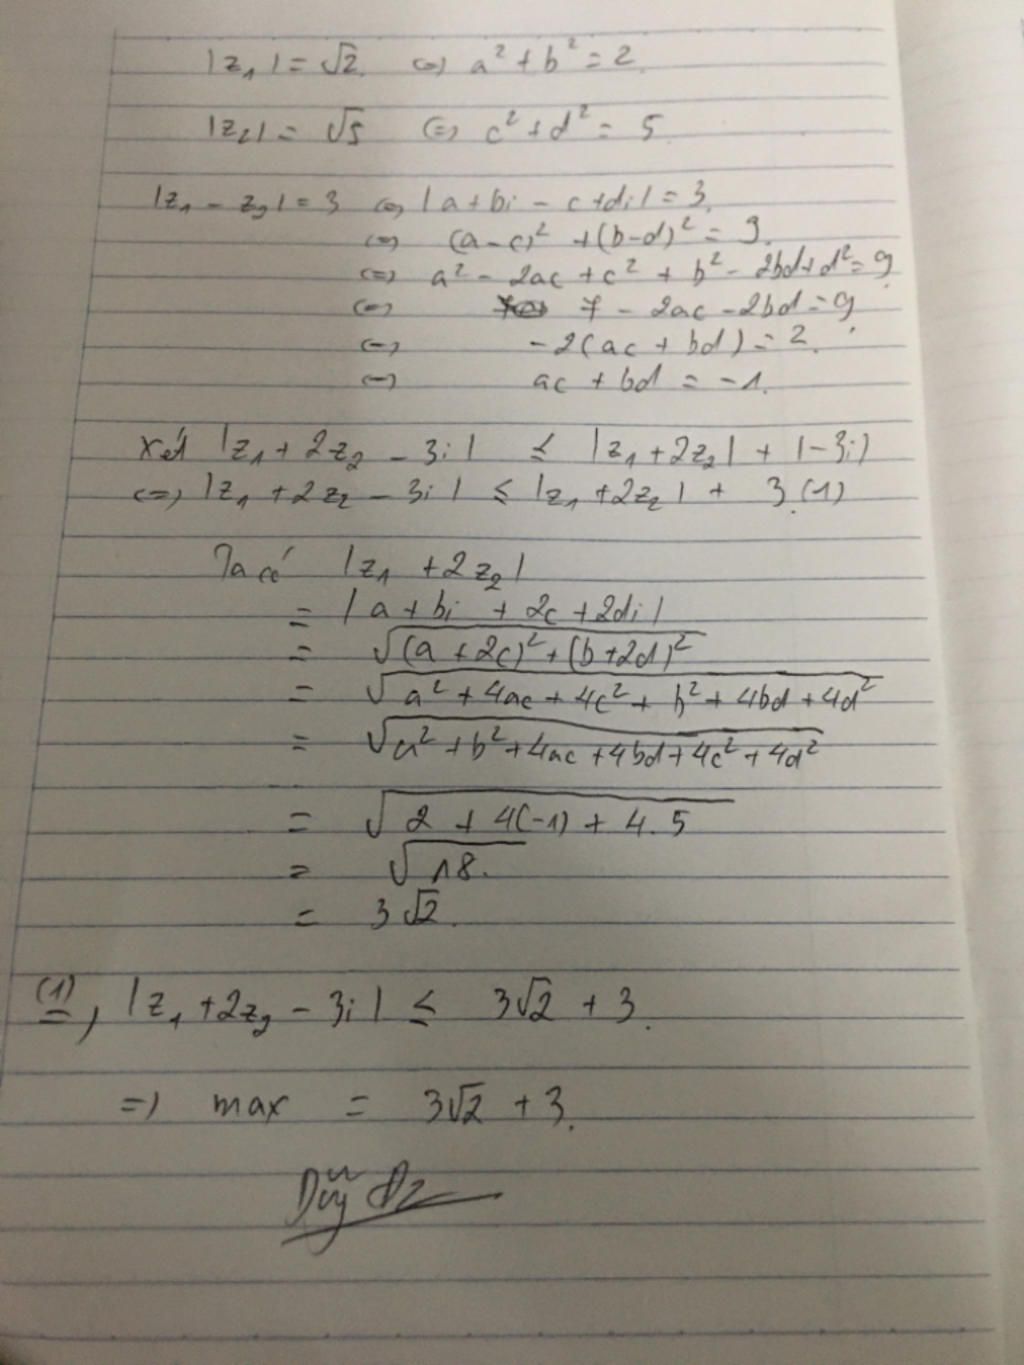 |z₁| = √2. ⇔ a² + b² = 2
|z₂| = √5 ⇔ c² + d² = 5
|z₁ - z₂| = 3 ⇔ |a + bi - c + di| = 3.
⇔ (a - c)² + (b - d)² = 9.
⇔ a² - 2ac + c² + b² - 2bd + d² = 9
⇔ 7 - 2ac - 2bd = 9
⇔ -2(ac + bd) = 2.
⇔ ac + bd = -1.
Xét |z₁ + 2z₂ - 3i| ≤ |z₁ + 2z₂| + |-3i|
⇔ |z₁ + 2z₂ - 3i| ≤ |z₁ + 2z₂| + 3. (1)
Ta có |z₁ + 2z₂|
= |a + bi + 2c + 2di|
= √(a + 2c)² + (b + 2d)²
= √a² + 4ac + 4c² + b² + 4bd + 4d²
= √a² + b² + 4ac + 4bd + 4c² + 4d²
= √2 + 4(-1) + 4.5
= √18.
= 3√2.
(1)⇒, |z₁ + 2z₂ - 3i| ≤ 3√2 + 3.
⇒ max = 3√2 + 3.